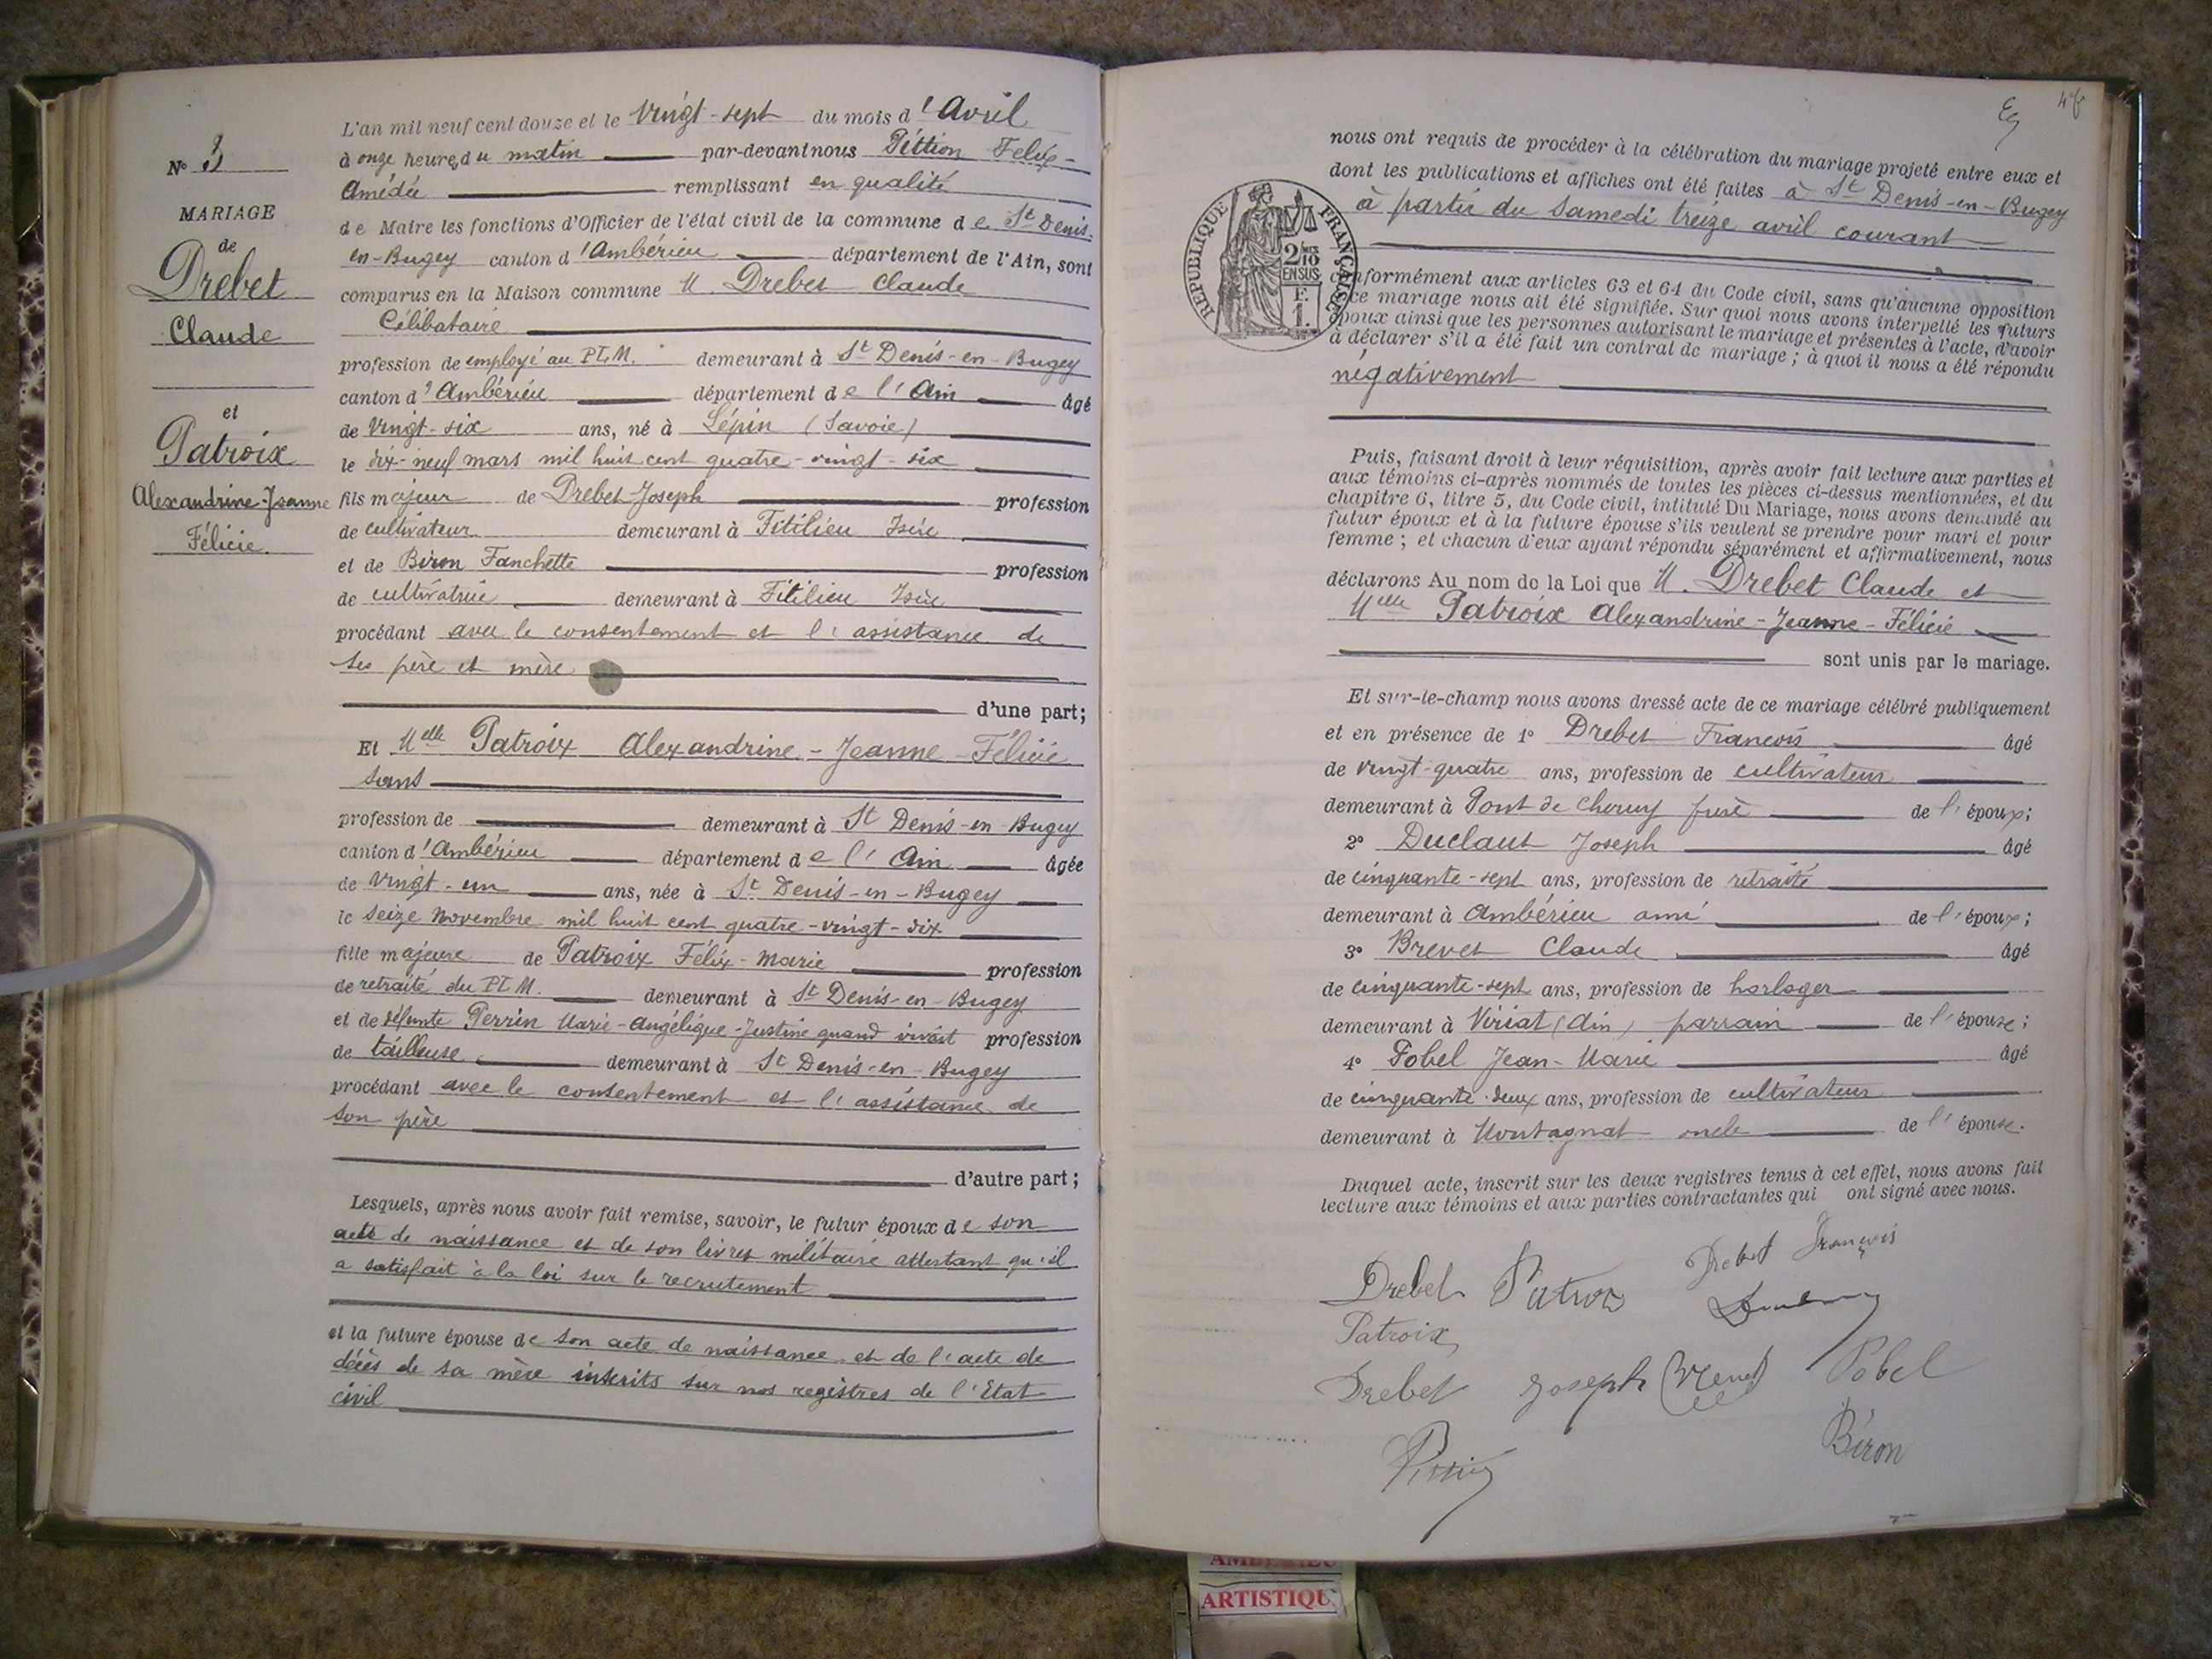 N° 3
MARIAGE
de
Drebet
Claude
et
Patroix
Alexandrine-Jeanne
Félicie.
L'an mil neuf cent douze et le vingt-sept du mois d'Avril
à onze heures du matin par-devant nous Pittion Felix-
Amédée remplissant en qualité
de Maire les fonctions d'Officier de l'état civil de la commune de St Denis-
en-Bugey canton d'Ambérieu département de l'Ain, sont
comparus en la Maison commune M. Drebet Claude
Célibataire
profession de employé au P.L.M. demeurant à St Denis-en-Bugey
canton d'Ambérieu département de l'Ain âgé
de vingt-six ans, né à Lépin (Savoie)
le dix-neuf mars mil huit cent quatre-vingt-six
fils majeur de Drebet Joseph profession
de cultivateur demeurant à Fitilieu Isère
et de Biron Fanchette profession
de cultivatrice demeurant à Fitilieu Isère
procédant avec le consentement et l'assistance de
ses père et mère
d'une part;
Et Melle Patroix Alexandrine-Jeanne-Félicie
sans
profession de demeurant à St Denis-en-Bugey
canton d'Ambérieu département de l'Ain âgée
de vingt-un ans, née à St Denis-en-Bugey
le seize Novembre mil huit cent quatre-vingt-dix
fille majeure de Patroix Félix-Marie profession
de retraité du P.L.M. demeurant à St Denis-en-Bugey
et de défunte Perrin Marie-Angélique-Justine quand vivait profession
de tailleuse demeurant à St Denis-en-Bugey
procédant avec le consentement et l'assistance de
son père
d'autre part;
Lesquels, après nous avoir fait remise, savoir, le futur époux de son
acte de naissance et de son livret militaire attestant qu'il
a satisfait à la loi sur le recrutement
et la future épouse de son acte de naissance et de l'acte de
décès de sa mère inscrits sur nos registres de l'Etat
civil
nous ont requis de procéder à la célébration du mariage projeté entre eux et
dont les publications et affiches ont été faites à St Denis-en-Bugey
à partir du Samedi treize avril courant
RÉPUBLIQUE FRANÇAISE
2/10
EN SUS
F.
1.
conformément aux articles 63 et 64 du Code civil, sans qu'aucune opposition
à ce mariage nous ait été signifiée. Sur quoi nous avons interpellé les futurs
époux ainsi que les personnes autorisant le mariage et présentes à l'acte, d'avoir
à déclarer s'il a été fait un contrat de mariage; à quoi il nous a été répondu
négativement
Puis, faisant droit à leur réquisition, après avoir fait lecture aux parties et
aux témoins ci-après nommés de toutes les pièces ci-dessus mentionnées, et du
chapitre 6, titre 5, du Code civil, intitulé Du Mariage, nous avons demandé au
futur époux et à la future épouse s'ils veulent se prendre pour mari et pour
femme; et chacun d'eux ayant répondu séparément et affirmativement, nous
déclarons Au nom de la Loi que M. Drebet Claude et
Melle Patroix Alexandrine-Jeanne-Félicie
sont unis par le mariage.
Et sur-le-champ nous avons dressé acte de ce mariage célébré publiquement
et en présence de 1° Drebet François âgé
de vingt-quatre ans, profession de cultivateur
demeurant à Pont de Cheruy frère de l'époux;
2° Duclaut Joseph âgé
de cinquante-sept ans, profession de retraité
demeurant à Ambérieu ami de l'époux;
3° Brevet Claude âgé
de cinquante-sept ans, profession de horloger
demeurant à Viriat (Ain) parrain de l'épouse;
4° Pobel Jean-Marie âgé
de cinquante-deux ans, profession de cultivateur
demeurant à Montagnat oncle de l'épouse.
Duquel acte, inscrit sur les deux registres tenus à cet effet, nous avons fait
lecture aux témoins et aux parties contractantes qui ont signé avec nous.
Drebet Patroix Drebet François
Patroix
Drebet Joseph Brevet Pobel
Biron
ARTISTIQU